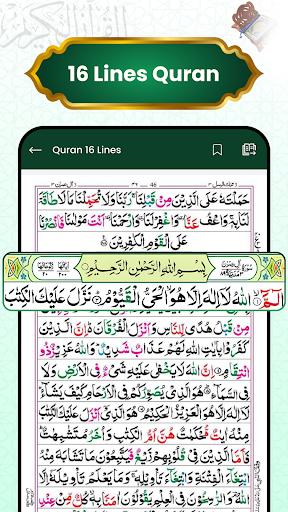 القرآن الكريم
16 Lines Quran
Quran 16 Lines
46
حَمَلْتَهٗ عَلَى الَّذِيْنَ مِنْ قَبْلِنَا رَبَّنَا وَلَا تُحَمِّلْنَا مَا لَا طَاقَةَ
لَنَا بِهٖ وَاعْفُ عَنَّا وَاغْفِرْ لَنَا وَارْحَمْنَا اَنْتَ مَوْلٰىنَا فَانْصُرْنَا
عَلَى الْقَوْمِ الْكٰفِرِيْنَ
بِسْمِ اللّٰهِ الرَّحْمٰنِ الرَّحِيْمِ
الٓمّٓ ۝ اللّٰهُ لَآ اِلٰهَ اِلَّا هُوَ الْحَيُّ الْقَيُّوْمُ ۝ نَزَّلَ عَلَيْكَ الْكِتٰبَ
مِنْ قَبْلُ هُدًى لِّلنَّاسِ وَاَنْزَلَ الْفُرْقَانَ اِنَّ الَّذِيْنَ
كَفَرُوْا بِاٰيٰتِ اللّٰهِ لَهُمْ عَذَابٌ شَدِيْدٌ وَاللّٰهُ عَزِيْزٌ ذُو
انْتِقَامٍ ۝ اِنَّ اللّٰهَ لَا يَخْفٰى عَلَيْهِ شَيْءٌ فِي الْاَرْضِ وَلَا فِي
السَّمَآءِ ۝ هُوَ الَّذِيْ يُصَوِّرُكُمْ فِي الْاَرْحَامِ كَيْفَ يَشَآءُ
لَآ اِلٰهَ اِلَّا هُوَ الْعَزِيْزُ الْحَكِيْمُ ۝ هُوَ الَّذِيْٓ اَنْزَلَ عَلَيْكَ الْكِتٰبَ
مِنْهُ اٰيٰتٌ مُّحْكَمٰتٌ هُنَّ اُمُّ الْكِتٰبِ وَاُخَرُ مُتَشٰبِهٰتٌ
فَاَمَّا الَّذِيْنَ فِيْ قُلُوْبِهِمْ زَيْغٌ فَيَتَّبِعُوْنَ مَا تَشَابَهَ مِنْهُ
ابْتِغَآءَ الْفِتْنَةِ وَابْتِغَآءَ تَاْوِيْلِهٖ وَمَا يَعْلَمُ تَاْوِيْلَهٗٓ اِلَّا
اللّٰهُ وَالرّٰسِخُوْنَ فِي الْعِلْمِ يَقُوْلُوْنَ اٰمَنَّا بِهٖ كُلٌّ مِّنْ عِنْدِ